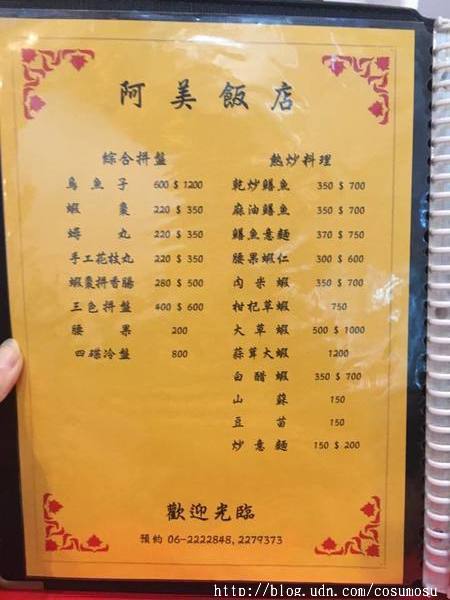 阿美飯店
綜合拼盤
烏魚子 600 $ 1200
蝦棗 220 $ 350
蟳丸 220 $ 350
手工花枝丸 220 $ 350
蝦棗拼香腸 280 $ 500
三色拼盤 400 $ 600
腰果 200
四碟冷盤 800
熱炒料理
乾炒鱔魚 350 $ 700
麻油鱔魚 350 $ 700
鱔魚意麵 370 $ 750
腰果蝦仁 300 $ 600
肉米蝦 350 $ 700
柑杞草蝦 750
大草蝦 500 $ 1000
蒜茸大蝦 1200
白醋蝦 350 $ 700
山蘇 150
豆苗 150
炒意麵 150 $ 200
歡迎光臨
預約 06-2222848, 2279373
http://blog.udn.com/cosumosu